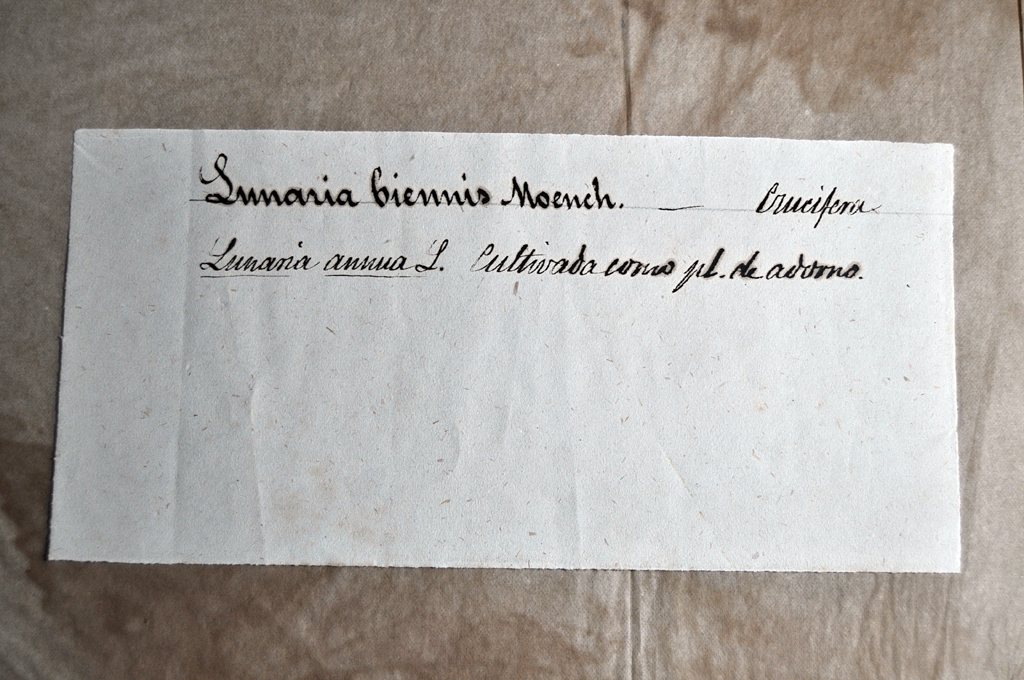 Lunaria biennis Moench. — Crucifera
Lunaria annua L. Cultivada como pl. de adorno.